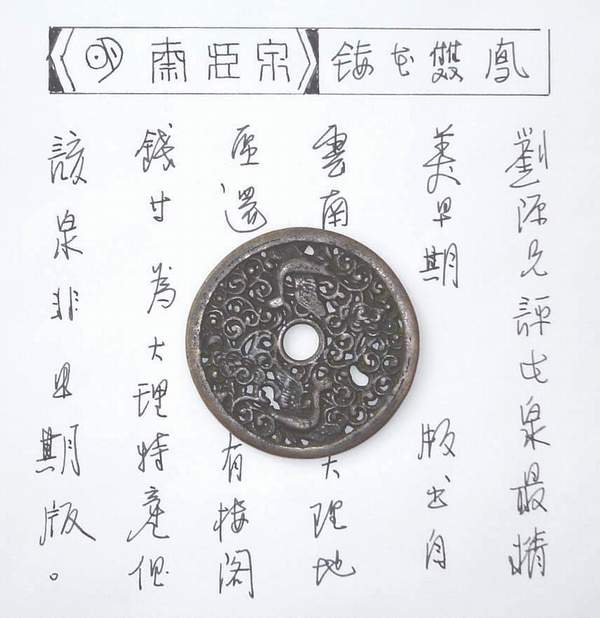 宋
雙鳳
劉源兄評此泉最精
美早期版出自
雲南大理地
區還有樓閣
錢為大理特產但
該泉非早期版。